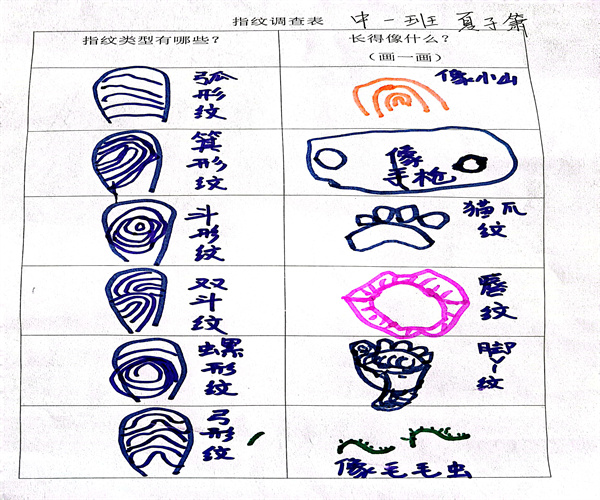 指纹调查表 中一班 夏子箫
指纹类型有哪些？
长得像什么？
（画一画）
弧形纹
像小山
箕形纹
像
手枪
斗形纹
猫爪
纹
双斗纹
唇纹
螺形纹
脚丫纹
弓形纹
像毛毛虫